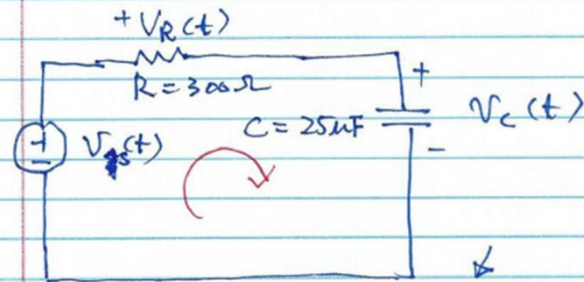 + VR(t)
R = 300Ω
+
C = 25uF
Vc(t)
+
-
Vs(t)
-